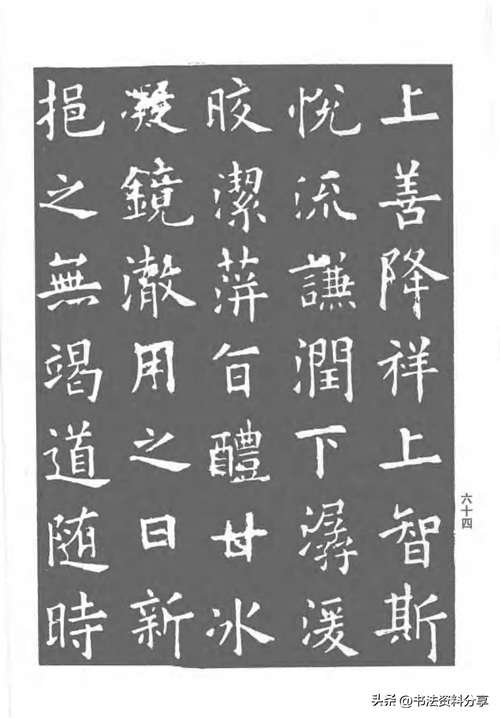 上善降祥上智斯
悅流謙潤下潺湲
皎潔蓱旨醴甘冰
凝鏡澈用之日新
挹之無竭道随時
六十四
头条 @书法资料分享